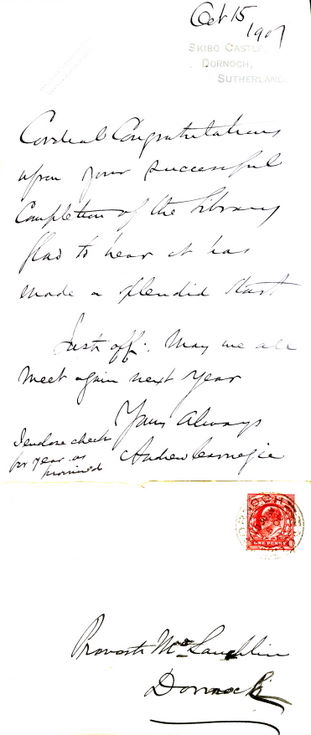 Oct 15
1907
SKIBO CASTLE,
DORNOCH,
SUTHERLAND.
Cordial Congratulations
upon your successful
Completion of the Library
Glad to hear it has
made a splendid start
Just off. May we all
meet again next year
Yours Always
Andrew Carnegie
I enclose check
for year as
promised
ONE PENNY
Provost McLaughlin
Dornoch